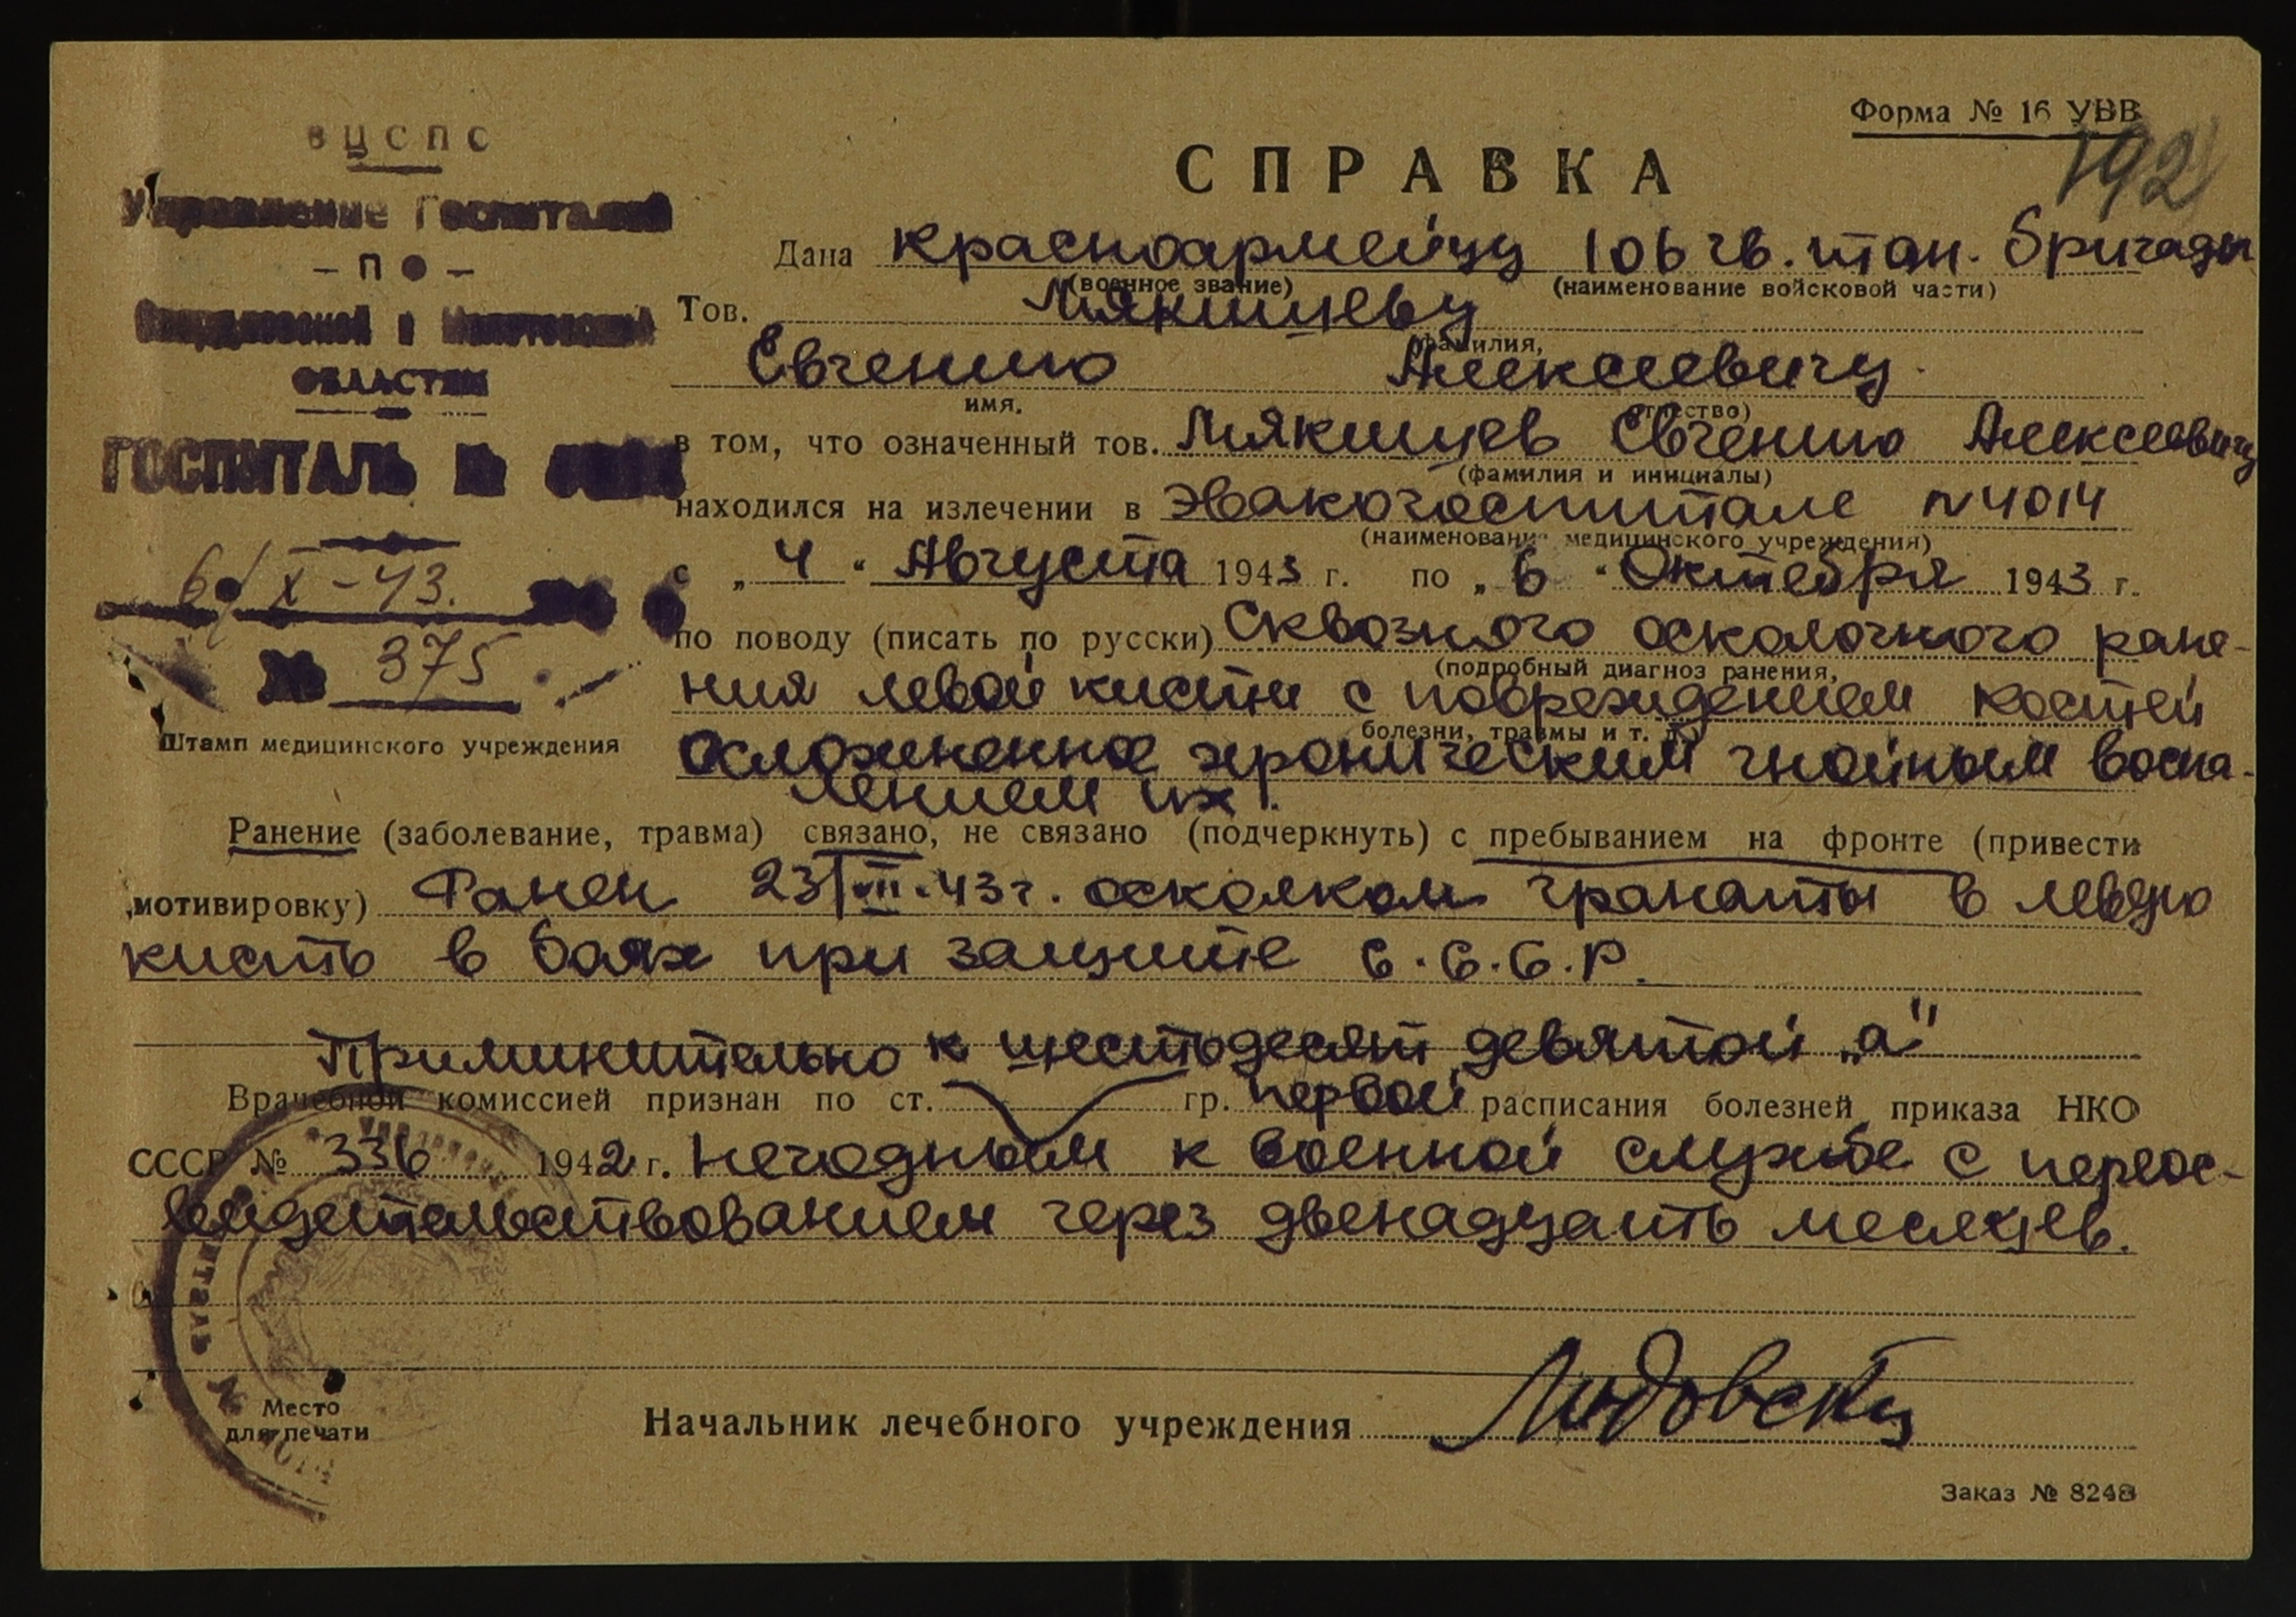 Форма № 16 УВВ
192
ВЦСПС
Управление Госпиталей
- ПО -
Свердловской и Молотовской
ОБЛАСТЯМ
ГОСПИТАЛЬ №
6/X-43.
№ 375
Штамп медицинского учреждения
СПРАВКА
Дана Красноармейцу 106 гв. тан. бригады
(военное звание) (наименование войсковой части)
Тов. Мякишеву
фамилия,
Евгению Алексеевичу
имя. отчество)
в том, что означенный тов. Мякишев Евгению Алексеевичу
(фамилия и инициалы)
находился на излечении в Эвакогоспитале №4014
(наименование медицинского учреждения)
с „4" Августа 1943 г. по „6" Октября 1943 г.
по поводу (писать по русски) Сквозного осколочного ране-
(подробный диагноз ранения,
ния левой кисти с повреждением костей
болезни, травмы и т. д.)
осложненное хроническим гнойным воспа-
лением их.
Ранение (заболевание, травма) связано, не связано (подчеркнуть) с пребыванием на фронте (привести
мотивировку) Ранен 23/VII-43г. осколком гранаты в левую
кисть в боях при защите С.С.С.Р.
Приминительно к шестьдесят девятой „а"
Врачебной комиссией признан по ст. гр. первой расписания болезней приказа НКО
СССР № 336 1942 г. Негодным к военной службе с переос-
видетельствованием через двенадцать месяцев.
Место
для печати
Начальник лечебного учреждения
Заказ № 8248